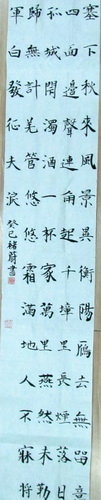 塞下秋來風景異衡陽雁去無留意
四面邊聲連角起千嶂里長煙落日
孤城閉濁酒一杯家萬里燕然未勒
歸無計羌管悠悠霜滿地人不寐將
軍白發征夫淚
癸巳楮蔚書